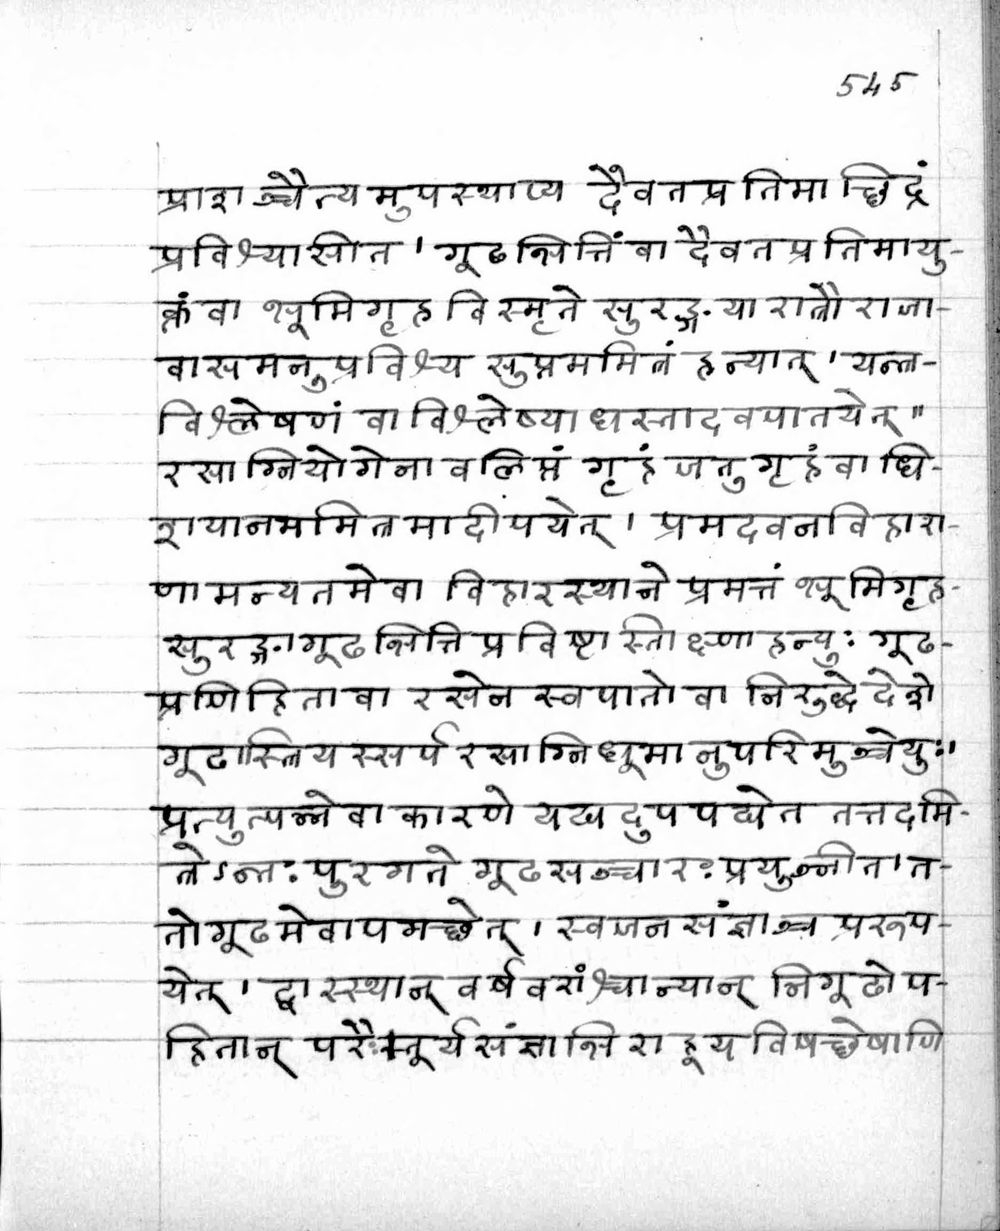 545
प्राश ञ्चैत्यमुपस्थाप्य दैवतप्रतिमाच्छिद्रं
प्रविश्यासीत । गूढभित्तिं वा दैवतप्रतिमायु-
क्तं वा भूमिगृह विस्मृते सुरङ्गया रात्रौ राजा-
वासमनुप्रविश्य सुप्तममित्रं हन्यात् । यन्त्र-
विश्लेषणं वा विश्लेष्याधस्तादवपातयेत् ॥
रसाग्नियोगेनावलिप्तं गृहं जतुगृहं वाधि-
शयानममित्रमादीपयेत् । प्रमदवनविहारा-
णामन्यतमे वा विहारस्थाने प्रमत्तं भूमिगृह-
सुरङ्गागूढभित्ति प्रविष्टास्तीक्ष्णा हन्युः गूढ-
प्रणिहिता वा रसेन स्वपातो वा निरुद्धे देशे
गूढास्त्रियस्सर्परसाग्निधूमानुपरिमुञ्चेयुः ।
प्रत्युत्पन्ने वा कारणे यद्यदुपपद्येत तत्तदमि-
त्रेऽन्तःपुरगते गूढसञ्चारः प्रयुञ्जीत । त-
तो गूढमेवापगच्छेत् । स्वजनसंज्ञाञ्च प्ररूप-
येत् । द्वास्स्थान् वर्षवरांश्चान्यान् निगूढोप-
हितान् परैः तूर्यसंज्ञाभिराहूय विषच्छेषाणि